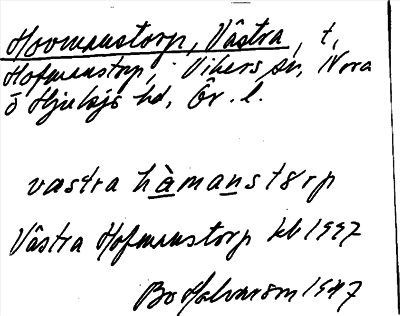 Hovmanstorp, Västra, t,
Hofmanstorp, Vikers sn, Nora
o Hjulsjö hd, Ör. l.
vastra hàmanstorp
Västra Hofmanstorp kb 1997
Bo Halvarson 1947